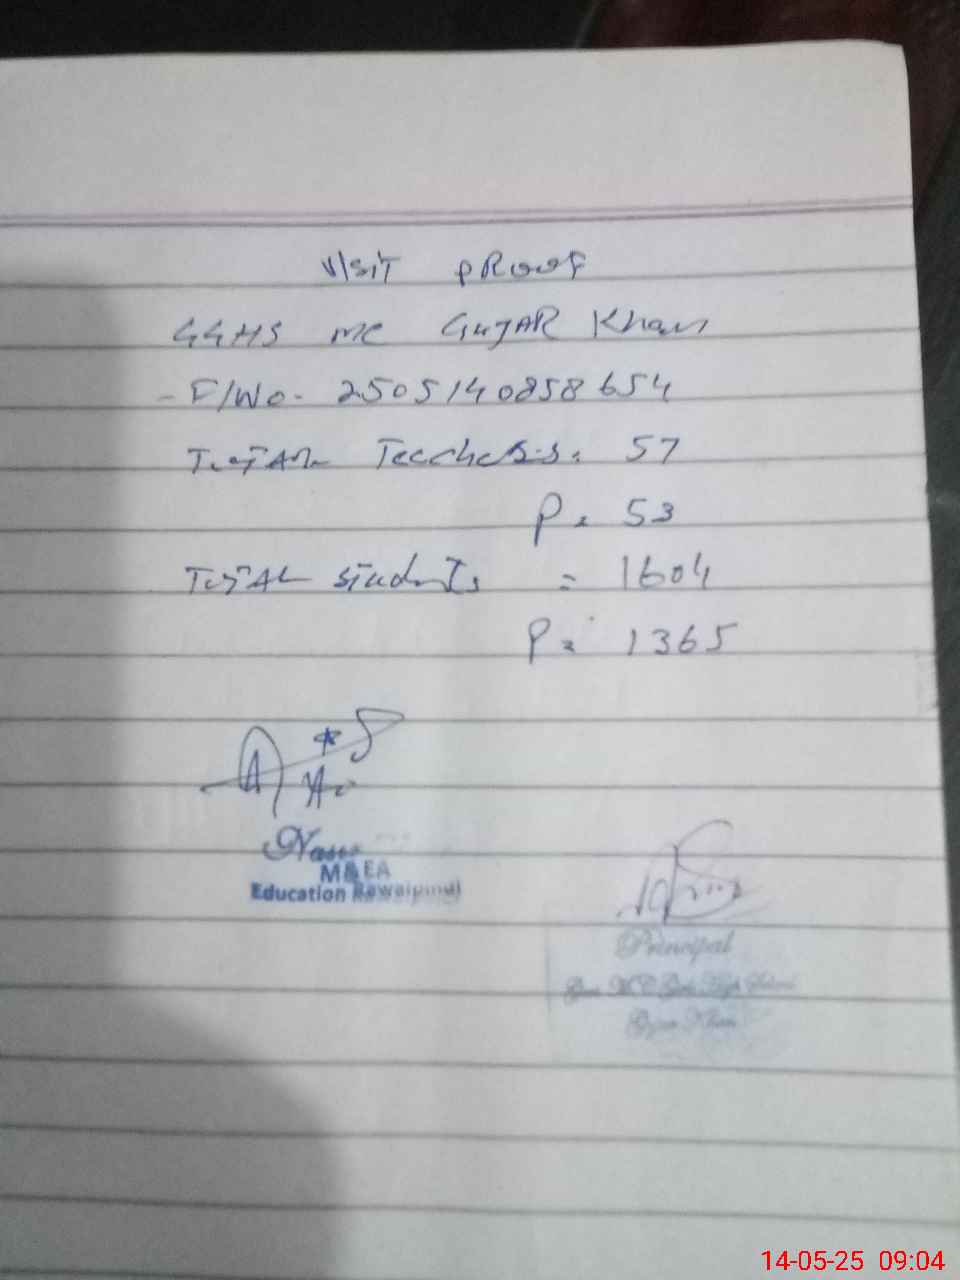 Visit Proof
GGHS MC Gujar Khan
- F/No. 2505140858654
Total Teachers = 57
P = 53
Total Students = 1604
P = 1365
M&EA
Education Rawalpindi
Principal
Govt. MC Girls High School
Gujar Khan
14-05-25 09:04